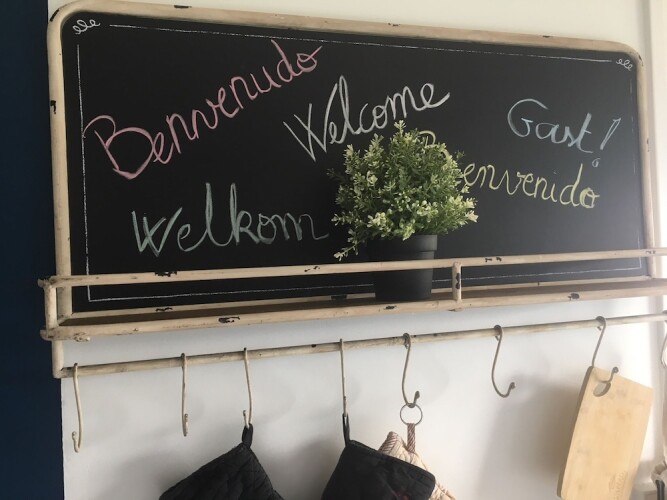 Benvenudo
Welcome
Gast!
Welkom
Benvenido